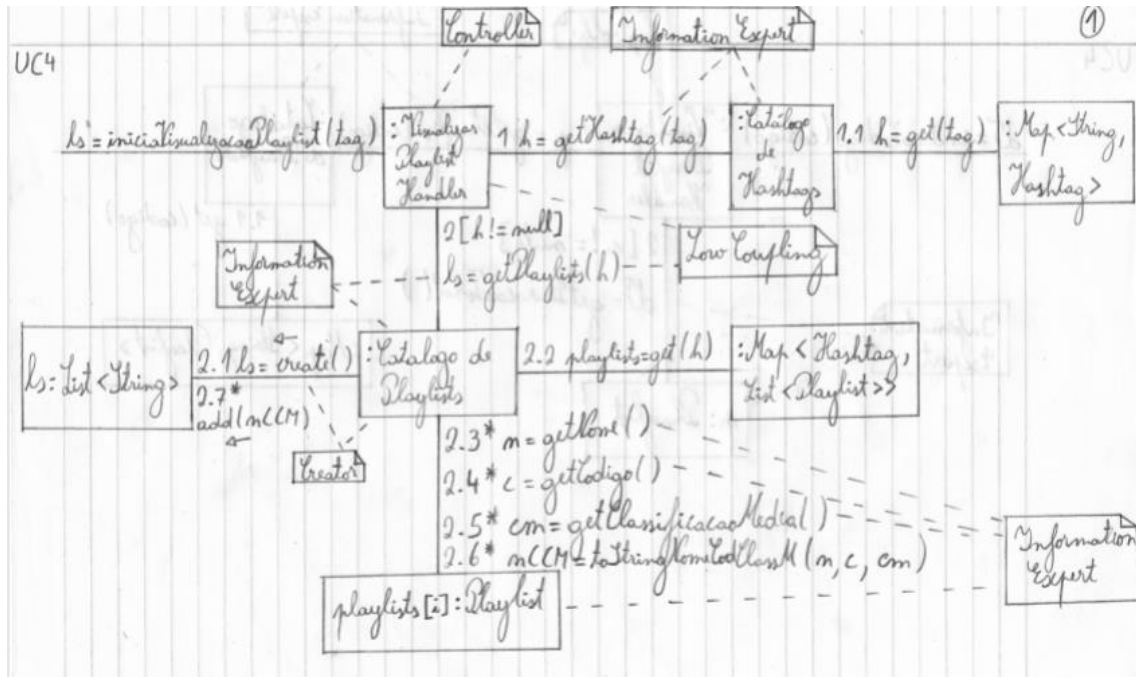 Controller
Information Expert
①
UC4
ls = iniciaVisualizacaoPlaylist(tag)
:Visualizar
Playlist
Handler
1 h = getHashtag(tag)
:Catálogo
de
Hashtags
1.1 h = get(tag)
:Map<String,
Hashtag>
2 [h != null]
ls = getPlaylists(h)
Low Coupling
Information
Expert
ls: List<String>
2.1 ls = create()
2.7*
add(nCCM)
:Catalogo de
Playlists
2.2 playlists = get(h)
:Map<Hashtag,
List<Playlist>>
Creator
2.3* n = getNome()
2.4* c = getCodigo()
2.5* cm = getClassificacaoMedia()
2.6* nCCM = toStringNomeCodClassM(n, c, cm)
Information
Expert
playlists[i]: Playlist